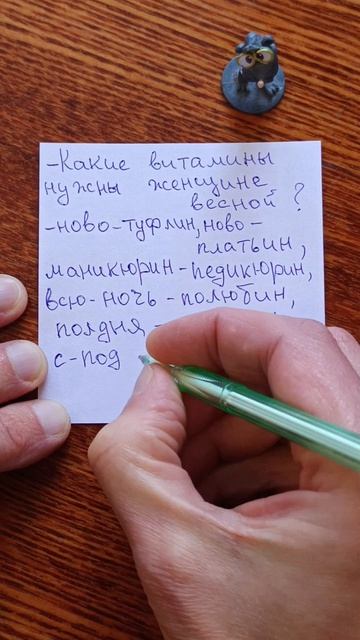 -Какие витамины
нужны женщине
весной?
-ново-туфлин, ново-
платьин,
маникюрин-педикюрин,
всю-ночь-полюбин,
полдня-
с-под